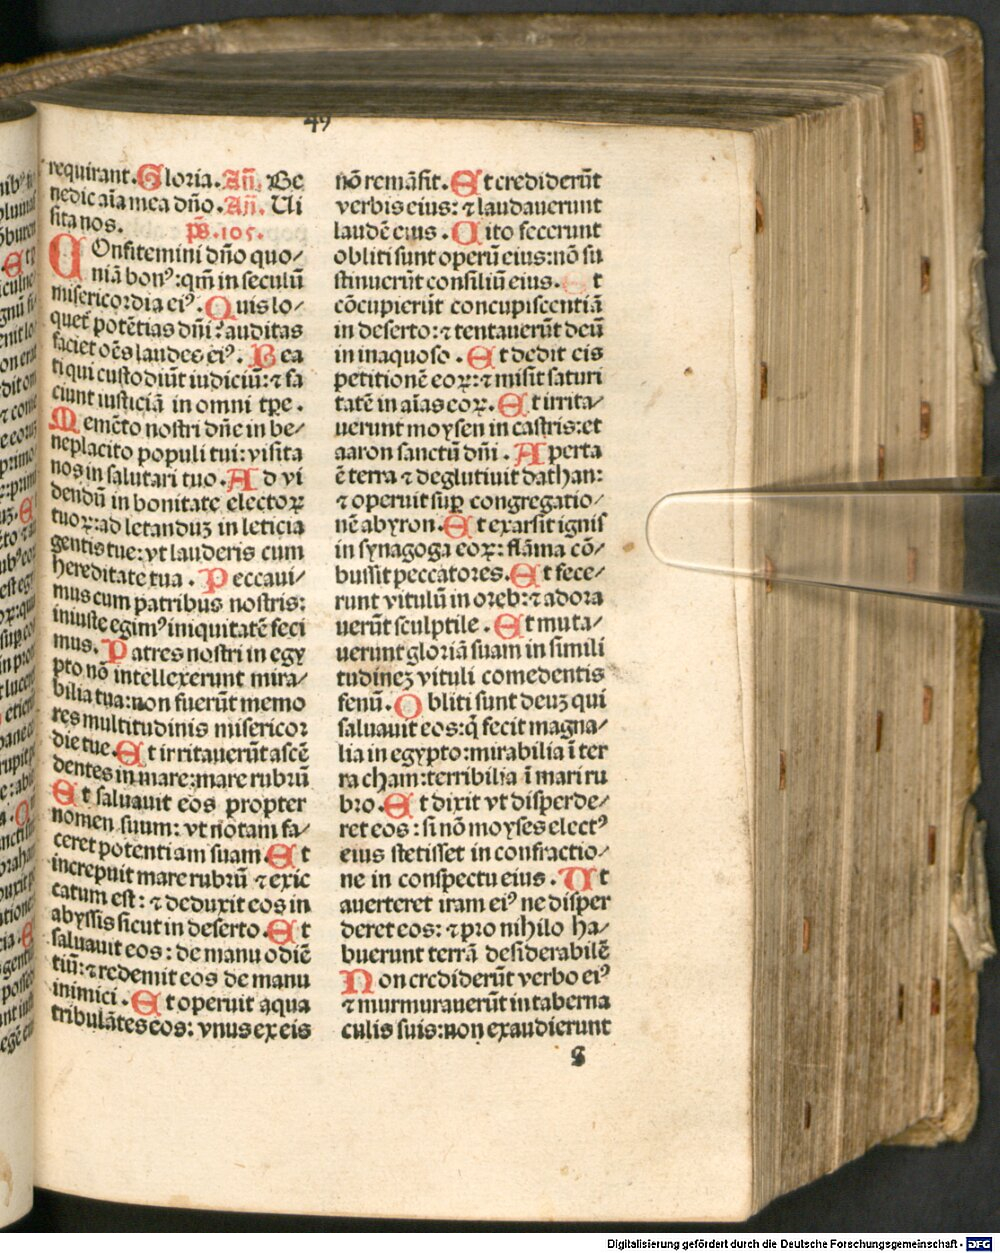 49
requirant. Gloria. Añ. Be
nedic aīa mea dño. Añ. Ui
sita nos. p̄s. 105.
COnfitemini dño quo/
niā bonꝰ: qm̄ in seculū
misericordia eiꝰ. Quis lo/
quet̄ potētias dñi: auditas
faciet oēs laudes eiꝰ. Bea
ti qui custodiūt iudiciū: ⁊ fa
ciunt iusticiā in omni tp̄e.
Memēto nostri dñe in be/
neplacito populi tui: visita
nos in salutari tuo. Ad vi
dendū in bonitate electoꝝ
tuoꝝ: ad letanduꝫ in leticia
gentis tue: vt lauderis cum
hereditate tua. Peccaui/
mus cum patribus nostris:
iniuste egimꝰ iniquitatē feci
mus. Patres nostri in egy
pto nō intellexerunt mira/
bilia tua: non fuerūt memo
res multitudinis misericor
die tue. Et irritauerūt ascē
dentes in mare: mare rubrū
Et saluauit eos propter
nomen suum: vt notam fa/
ceret potentiam suam. Et
increpuit mare rubrū ⁊ exic
catum est: ⁊ deduxit eos in
abyssis sicut in deserto. Et
saluauit eos: de manu odiē
tiū: ⁊ redemit eos de manu
inimici. Et operuit aqua
tribulātes eos: vnus ex eis
nō remāsit. Et crediderūt
verbis eius: ⁊ laudauerunt
laudē eius. Cito fecerunt
obliti sunt operū eius: nō su
stinuerūt consiliū eius. Et
cōcupierūt concupiscentiā
in deserto: ⁊ tentauerūt deū
in inaquoso. Et dedit eis
petitionē eoꝝ: ⁊ misit saturi
tatē in aīas eoꝝ. Et irrita/
uerunt moysen in castris: et
aaron sanctū dñi. Aperta
ē terra ⁊ deglutiuit dathan:
⁊ operuit suꝑ congregatio/
nē abyron. Et exarsit ignis
in synagoga eoꝝ: flāma cō/
bussit peccatores. Et fece/
runt vitulū in oreb: ⁊ adora
uerūt sculptile. Et muta/
uerunt gloriā suam in simili
tudineꝫ vituli comedentis
fenū. Obliti sunt deuꝫ qui
saluauit eos: q̄ fecit magna/
lia in egypto: mirabilia ī ter
ra cham: terribilia ī mari ru
bro. Et dixit vt disperde/
ret eos: si nō moyses electꝰ
eius stetisset in confractio/
ne in conspectu eius. Ut
auerteret iram eiꝰ ne disper
deret eos: ⁊ pro nihilo ha/
buerunt terrā desiderabilē
Non crediderūt verbo eiꝰ
⁊ murmurauerūt in taberna
culis suis: non exaudierunt
Digitalisierung gefördert durch die Deutsche Forschungsgemeinschaft - DFG